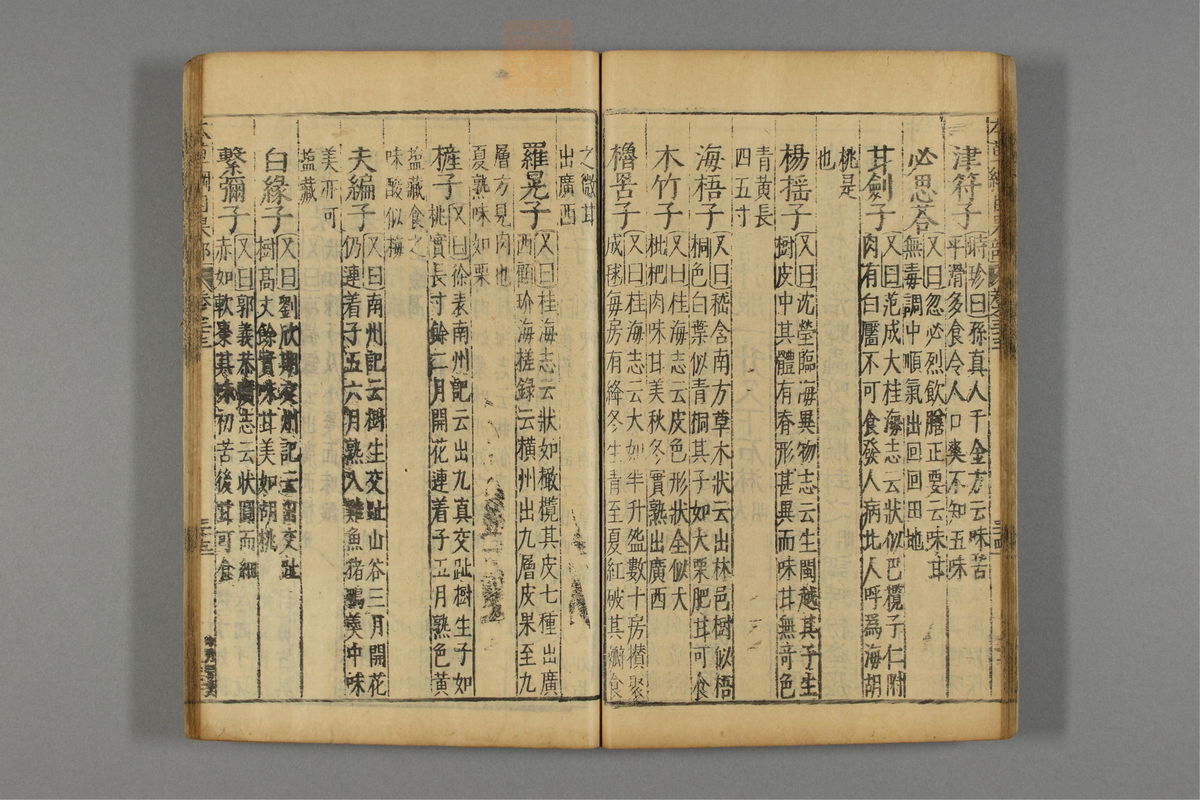 津符子時珍曰孫真人千金方云味苦
平滑多食令人口爽不知五味
必思荅又曰忽必烈飲膳正要云味甘
無毒調中順氣出回回田地
甘劍子又曰范成大桂海志云狀似巴欖子仁附
肉有白靨不可食發人病北人呼爲海胡
桃是
也
楊摇子又曰沈瑩臨海異物志云生閩越其子生
樹皮中其體有脊形甚異而味甘無竒色
青黄長
四五寸
海梧子又曰嵇含南方草木狀云出林邑樹似梧
桐色白葉似青桐其子如大栗肥甘可食
木竹子又曰桂海志云皮色形狀全似大
枇杷肉味甘美秋冬實熟出廣西
櫓罟子又曰桂海志云大如半升盌數十房攢聚
成毬每房有縫冬生青至夏紅破其瓣食
之微甘
出廣西
羅晃子又曰桂海志云狀如橄欖其皮七種出廣
西顧玠海槎錄云横州出九層皮果至九
層方見肉也
夏熟味如栗
㯆子又曰徐表南州記云出九真交趾樹生子如
桃實長寸餘二月開花連着子五月熟色黄
盐藏食之
味酸似梅
夫編子又曰南州記云樹生交趾山谷三月開花
仍連着子五六月熟入雞魚猪鴨羮中味
美亦可
盐藏
白緣子又曰劉欣期交州記云出交趾
樹高丈餘實味甘美如胡桃
繫彌子又曰郭義恭廣志云狀圓而細
赤如軟棗其味初苦後甘可食